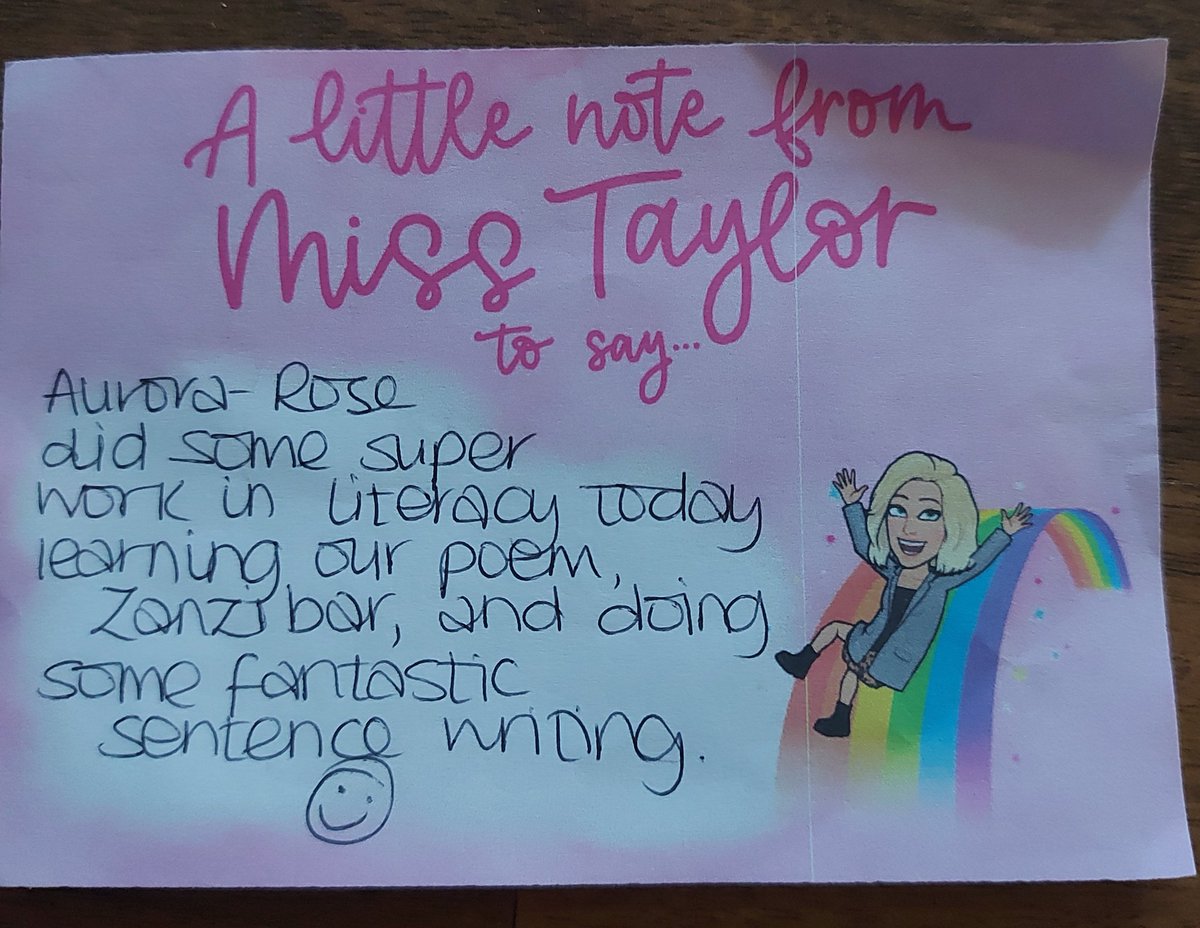 A little note from
Miss Taylor
to say...
Aurora-Rose
did some super
work in literacy today
learning our poem,
Zanzibar, and doing
some fantastic
sentence writing.